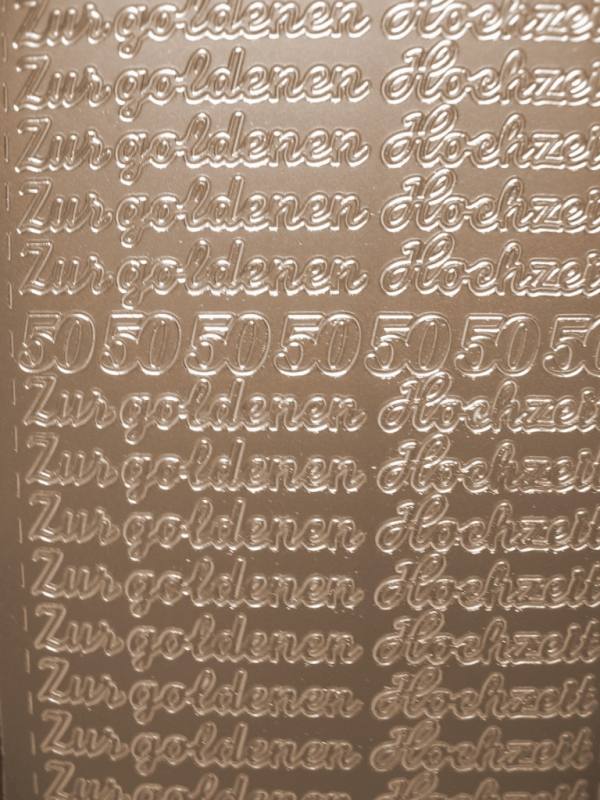 Zur goldenen Hochzeit
Zur goldenen Hochzei
Zur goldenen Hochzei
Zur goldenen Hochzei
Zur goldenen Hochzeit
50 50 50 50 50 50 50
Zur goldenen Hochzeit
Zur goldenen Hochzeit
Zur goldenen Hochzeit
Zur goldenen Hochzeit
Zur goldenen Hochzeit
Zur goldenen Hochzeit
Zur goldenen Hochzeit
Zur goldenen Hochzeit